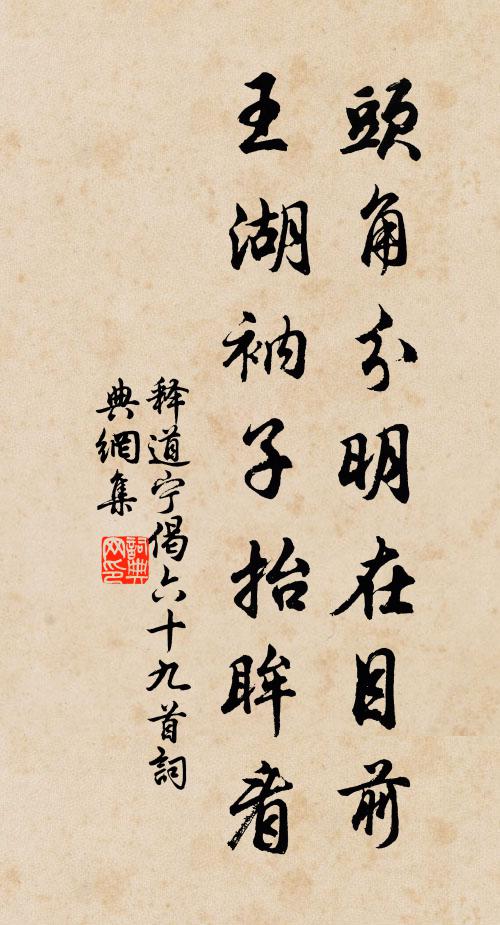 頭角分明在目前
王湖衲子抬眸看
释道宁偈六十九首詞
典網集
詞典
网印